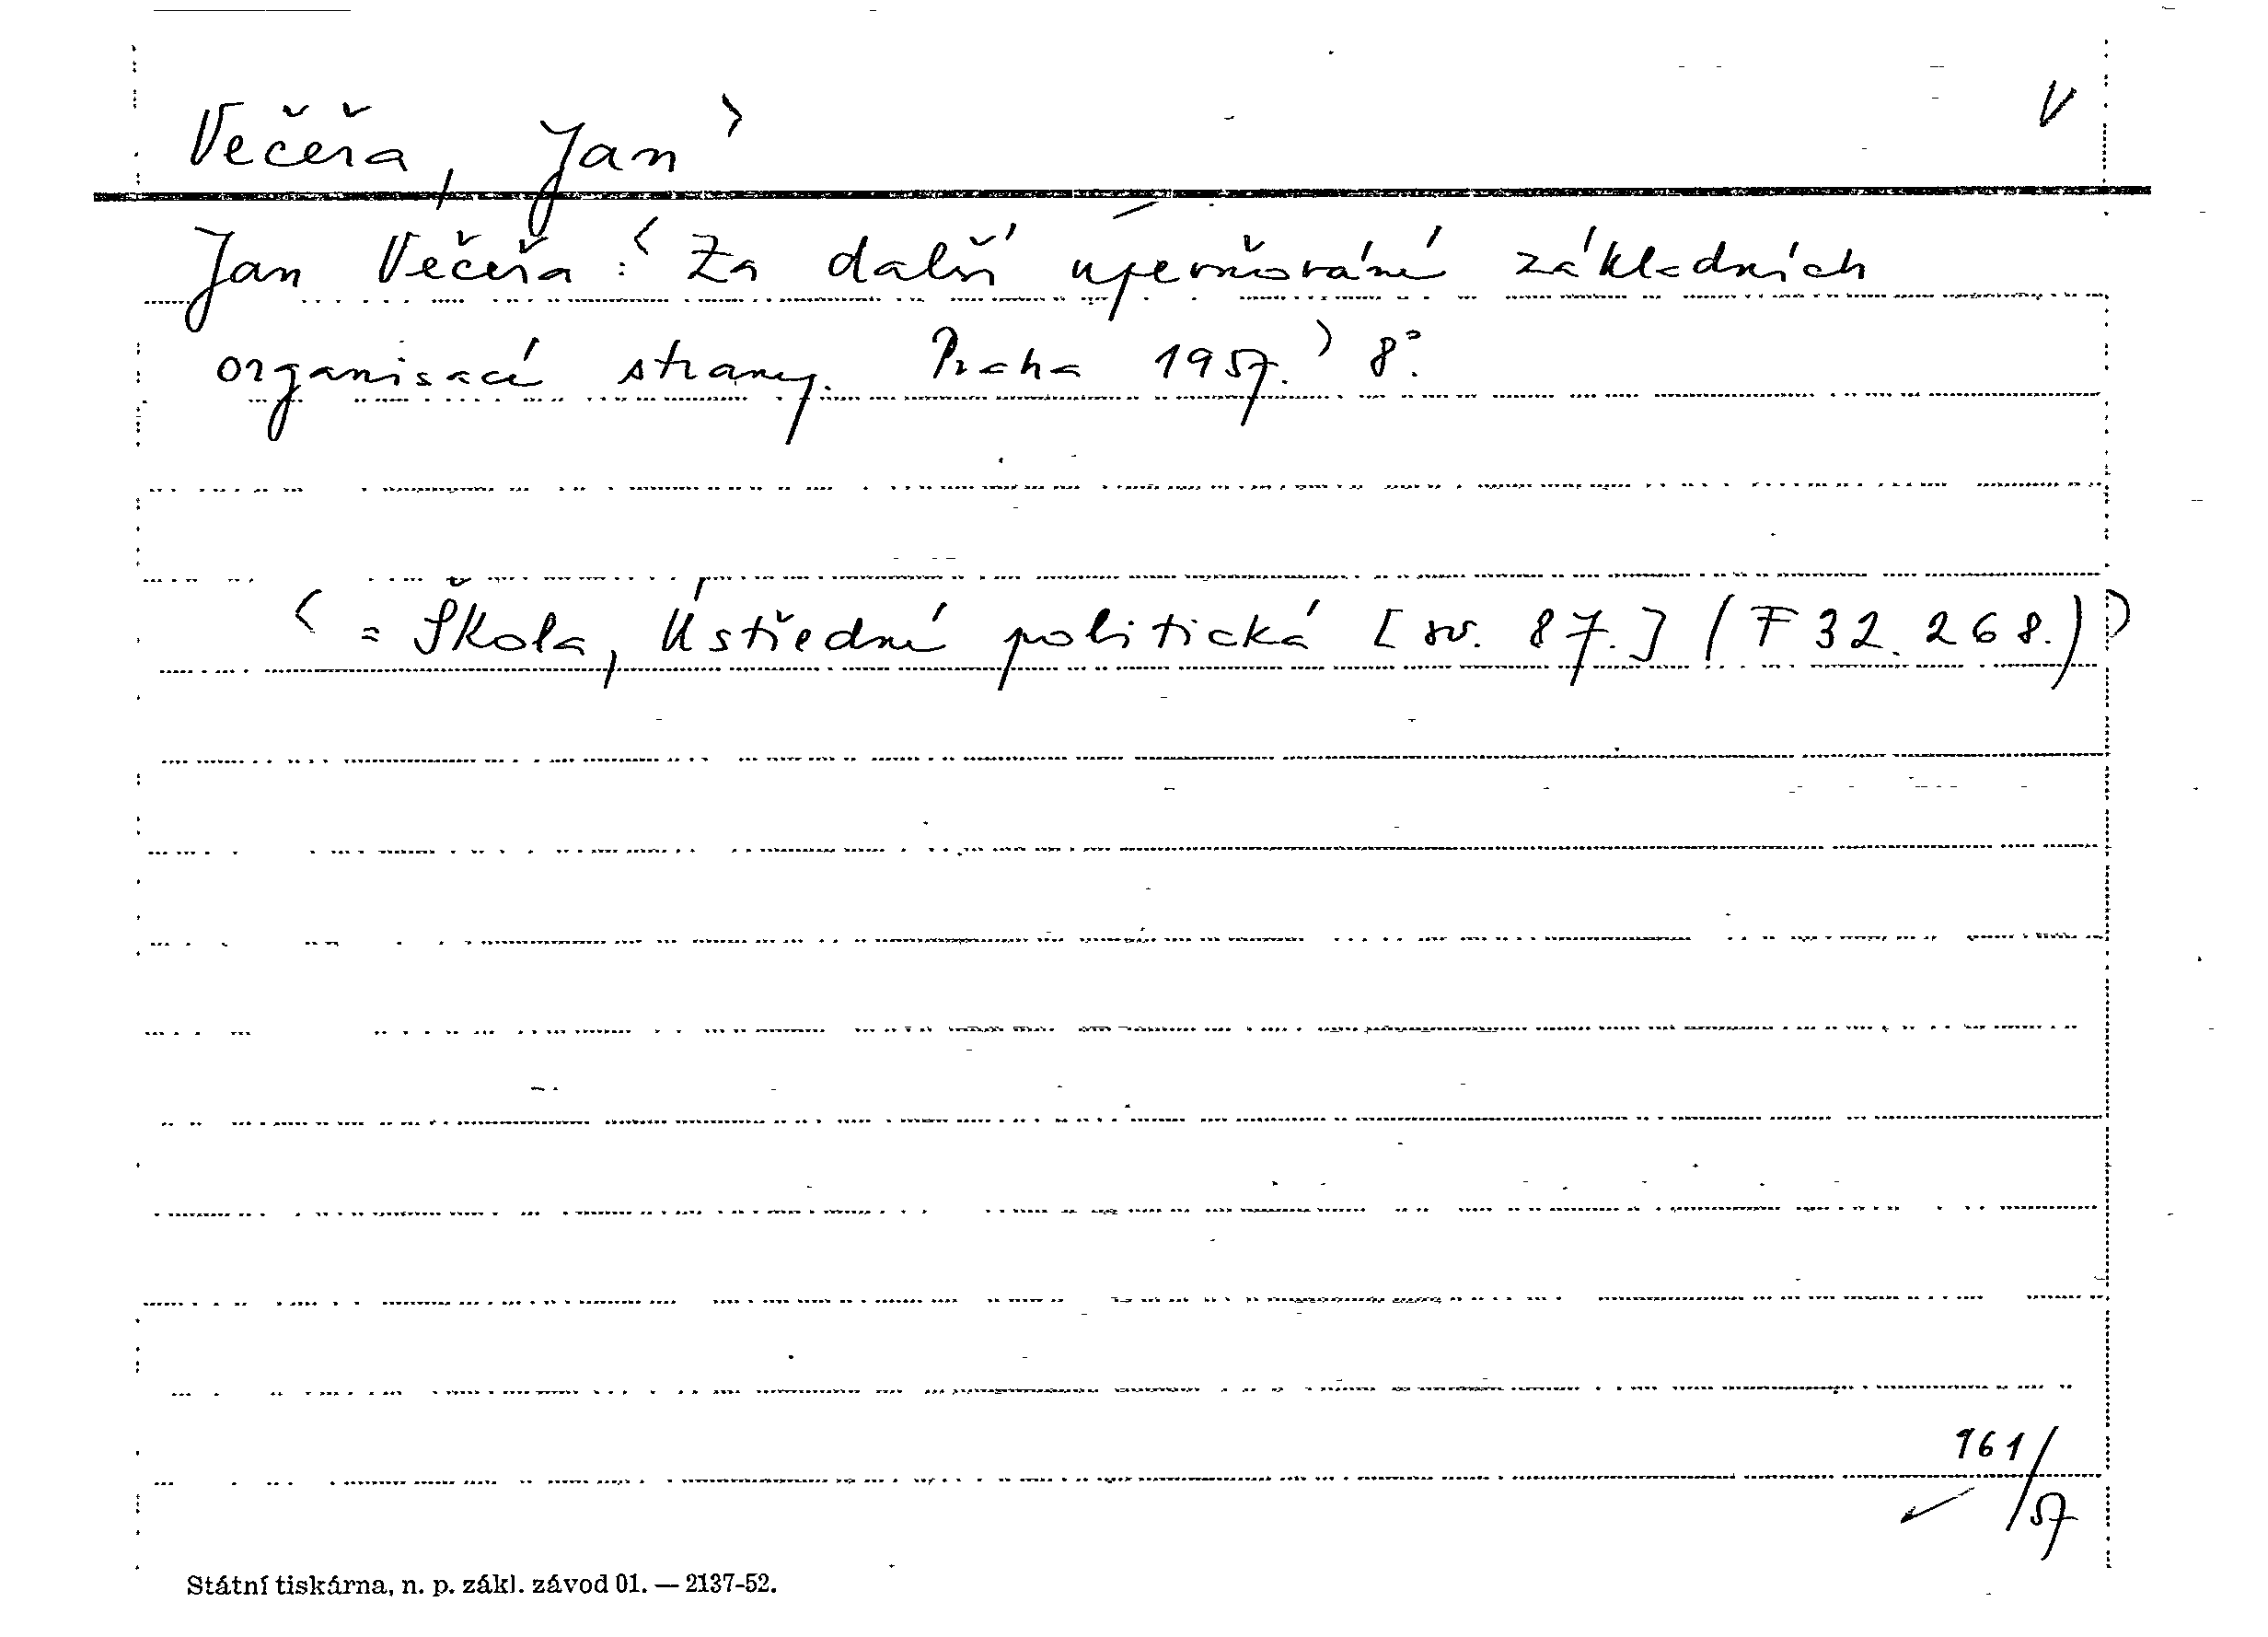 Večeřa, Jan⟩ V
Jan Večeřa :⟨ Za další upevňování základních
organisací strany. Praha 1957.⟩ 8°.
⟨ = Škola, Ústřední politická [sv. 87.] (F 32.268.)⟩
161/57
Státní tiskárna, n. p. zákl. závod 01. — 2137-52.